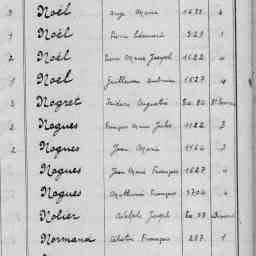 3 Noël Ange Marie 1638 4
1 Noël Pierre Edouard 323 1
2 Noël Pierre Marie Joseph 1622 4
1 Noël Guillaume 1627 4
3 Nogret Isidore Augustin
2 Nogues François Marie Jules 1122 3
2 Nogues Jean Marie 1164 3
Nogues Jean Marie François 1647 4
Nogues Mathurin François 1704 4
Nohier Adolphe Joseph
Normand Célestin François 287 1